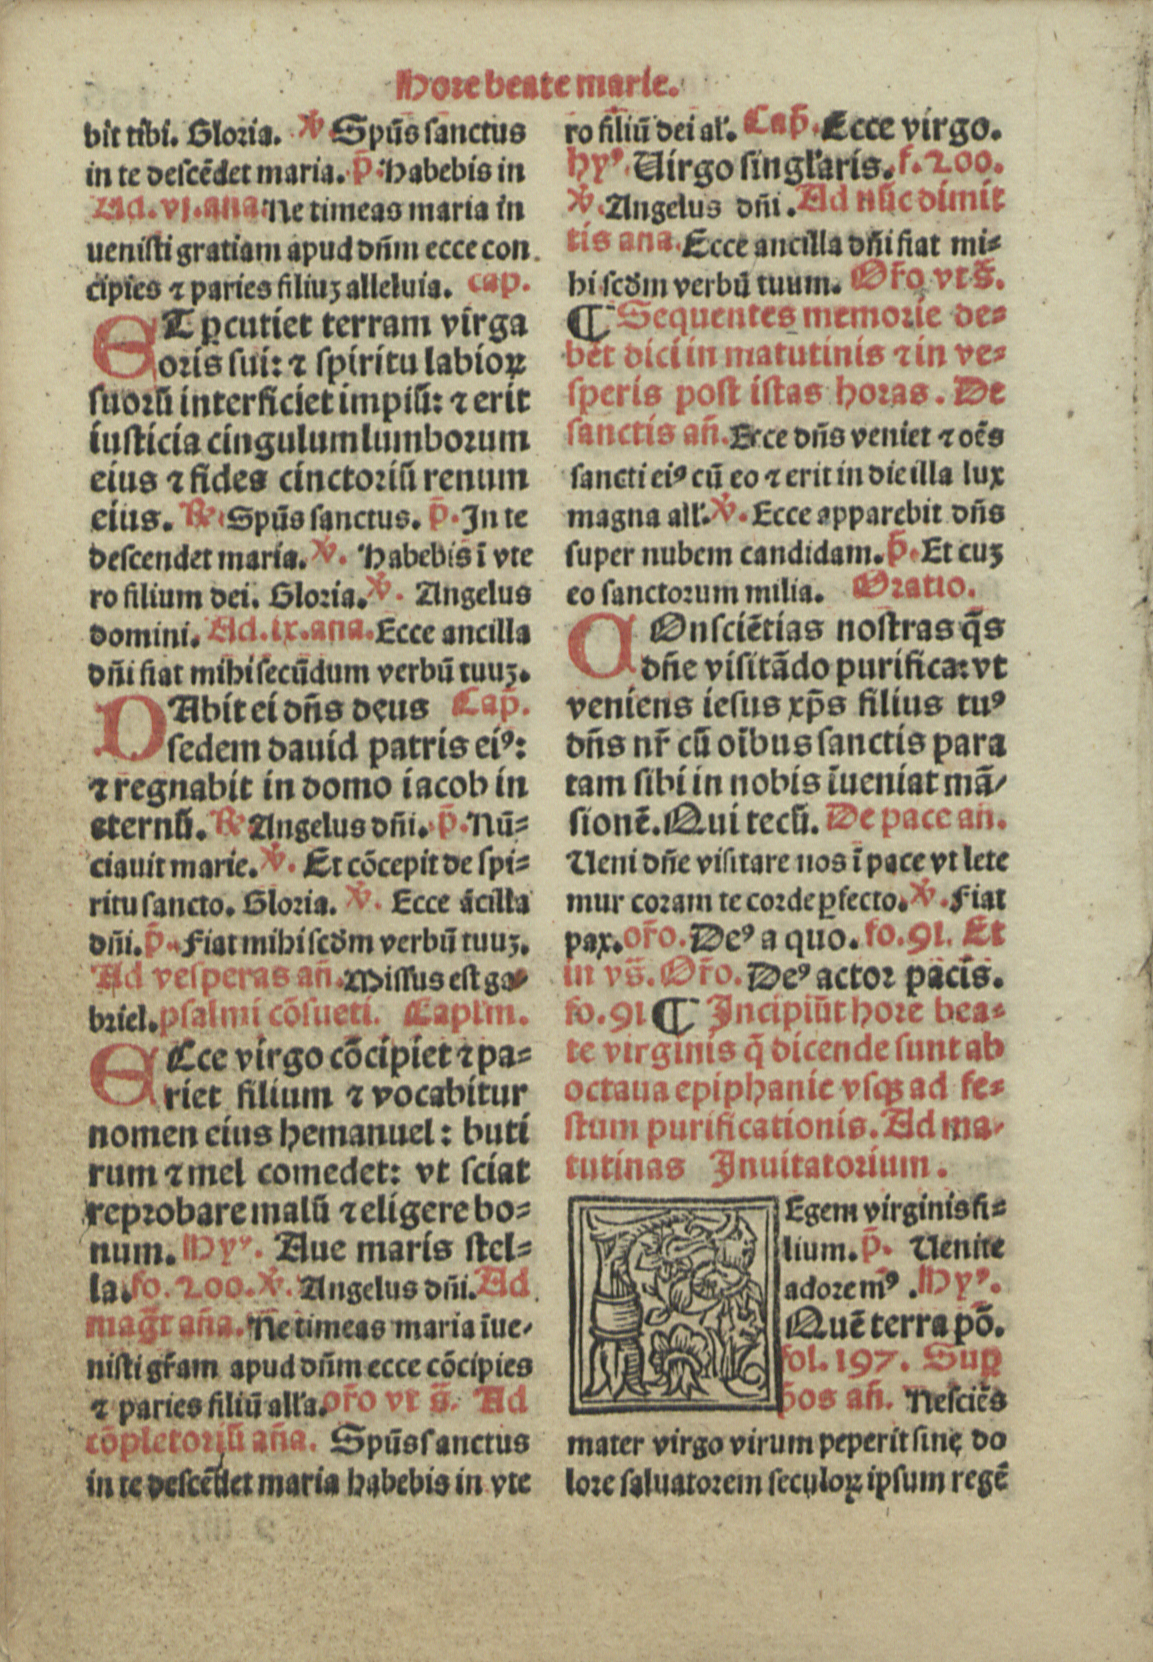 Hore beate marie.
bit tibi. Gloria. ℣. Spūs sanctus
in te descēdet maria. p̄. Habebis in
Ad. vj. ana. Ne timeas maria in
uenisti gratiam apud dn̄m ecce con
cipies ⁊ paries filiuʒ alleluia. cap.
ET ꝑcutiet terram virga
oris sui: ⁊ spiritu labioꝝ
suorū interficiet impiū: ⁊ erit
iusticia cingulum lumborum
eius ⁊ fides cinctoriū renum
eius. ℟. Spūs sanctus. p̄. In te
descendet maria. ℣. Habebis ī vte
ro filium dei. Gloria. ℣. Angelus
domini. Ad. ix. ana. Ecce ancilla
dn̄i fiat mihi secūdum verbū tuuʒ.
DAbit ei dn̄s deus Cap̄.
sedem dauid patris eiꝰ:
⁊ regnabit in domo iacob in
eternū. ℟. Angelus dn̄i. p̄. Nū-
ciauit marie. ℣. Et cōcepit de spi-
ritu sancto. Gloria. ℣. Ecce ācilla
dn̄i. p̄. Fiat mihi scd̄m verbū tuuʒ.
Ad vesperas an̄. Missus est ga-
briel. psalmi cōsueti. Caplm̄.
ECce virgo cōcipiet ⁊ pa-
riet filium ⁊ vocabitur
nomen eius hemanuel: buti
rum ⁊ mel comedet: vt sciat
reprobare malū ⁊ eligere bo-
num. Hyꝰ. Aue maris stel-
la. fo. 200. ℣. Angelus dn̄i. Ad
maḡt an̄a. Ne timeas maria īue-
nisti gr̄am apud dn̄m ecce cōcipies
⁊ paries filiū all'a. or̄o vt s̄. Ad
cōpletoriū an̄a. Spūs sanctus
in te descēdet maria habebis in vte
ro filiū dei al'. Cap̄. Ecce virgo.
hyꝰ. Uirgo singl'aris. f. 200.
℣. Angelus dn̄i. Ad nūc dimit
tis ana. Ecce ancilla dn̄i fiat mi-
hi scd̄m verbū tuum. Or̄o vt s̄.
¶ Sequentes memorie de-
bēt dici in matutinis ⁊ in ve-
speris post istas horas. De
sanctis an̄. Ecce dn̄s veniet ⁊ oēs
sancti eiꝰ cū eo ⁊ erit in die illa lux
magna all'. ℣. Ecce apparebit dn̄s
super nubem candidam. p̄. Et cuʒ
eo sanctorum milia. Oratio.
COnsciētias nostras q̄s
dn̄e visitādo purifica: vt
veniens iesus xp̄s filius tuꝰ
dn̄s nr̄ cū oībus sanctis para
tam sibi in nobis īueniat mā-
sionē. Qui tecū. De pace an.
Ueni dn̄e visitare nos ī pace vt lete
mur coram te corde ꝑfecto. ℣. Fiat
pax. or̄o. Deꝰ a quo. fo. 91. Et
in vs̄. Or̄o. Deꝰ actor pacis.
fo. 91 ¶ Incipiūt hore bea-
te virginis q̄ dicende sunt ab
octaua epiphanie vsqꝫ ad fe-
stum purificationis. Ad ma-
tutinas Inuitatorium.
REgem virginis fi-
lium. p̄. Uenite
adoremꝰ. Hyꝰ.
Quē terra pō.
fol. 197. Suꝑ
hos an̄. Nesciēs
mater virgo virum peperit sine do
lore saluatorem seculoꝝ ipsum regē